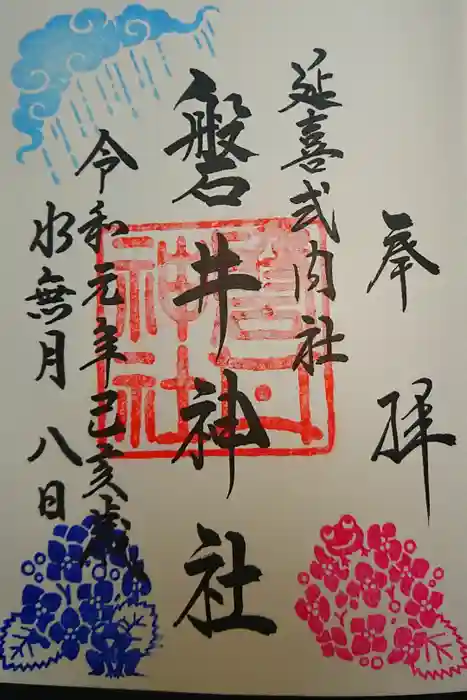 奉拝
延喜式内社
磐井神社
令和元年己亥歳
水無月八日